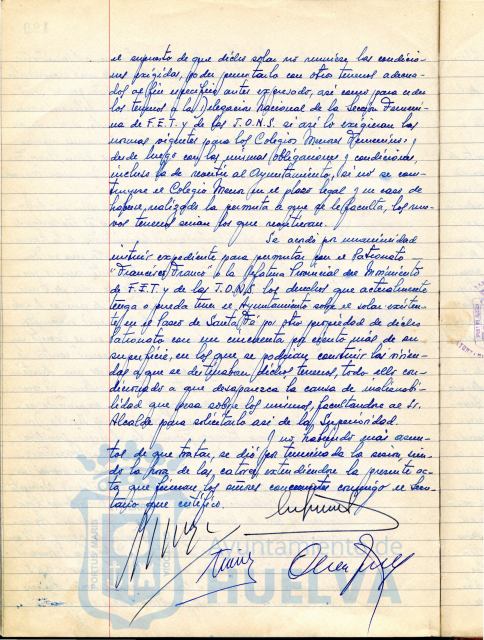 el supuesto de que dicho solar no reuniese las condicio-
nes exigidas, poder permutarlo con otros terrenos adecua-
dos al fin específico antes expresado, así como para ceder
los terrenos a la Delegación Nacional de la Sección Femeni-
na de F.E.T. y de las J.O.N.S. si así lo exigieran las
normas vigentes para los Colegios Menores Femeninos, y
desde luego con las mismas obligaciones y condiciones,
incluso la de revertir al Ayuntamiento, si no se cons-
truyese el Colegio Menor en el plazo legal y en caso de
haberse realizado la permuta a que se le faculta, los nue-
vos terrenos serían los que revertieran.
Se acordó por unanimidad
instruir expediente para permutar con el Patronato
"Francisco Franco" o la Jefatura Provincial del Movimiento
de F.E.T. y de las J.O.N.S. los derechos que actualmente
tenga o pueda tener el Ayuntamiento sobre el solar existen-
te en el Paseo de Santa Fé por otro propiedad de dicho
Patronato con un cincuenta por ciento más de su
superficie, en los que se podrían construir las vivien-
das a que se destinaban dichos terrenos, todo ello con-
dicionado a que desaparezca la causa de inalienabi-
lidad que pesa sobre los mismos, facultándose al Sr.
Alcalde para solicitarlo así de la Superioridad.
Y no habiendo más asun-
tos de que tratar, se dió por terminada la sesión, sien-
do la hora de las catorce extendiéndose la presente ac-
ta que firman los señores concurrentes conmigo el Secre-
tario que certifico.
Ayuntamiento de
HUELVA